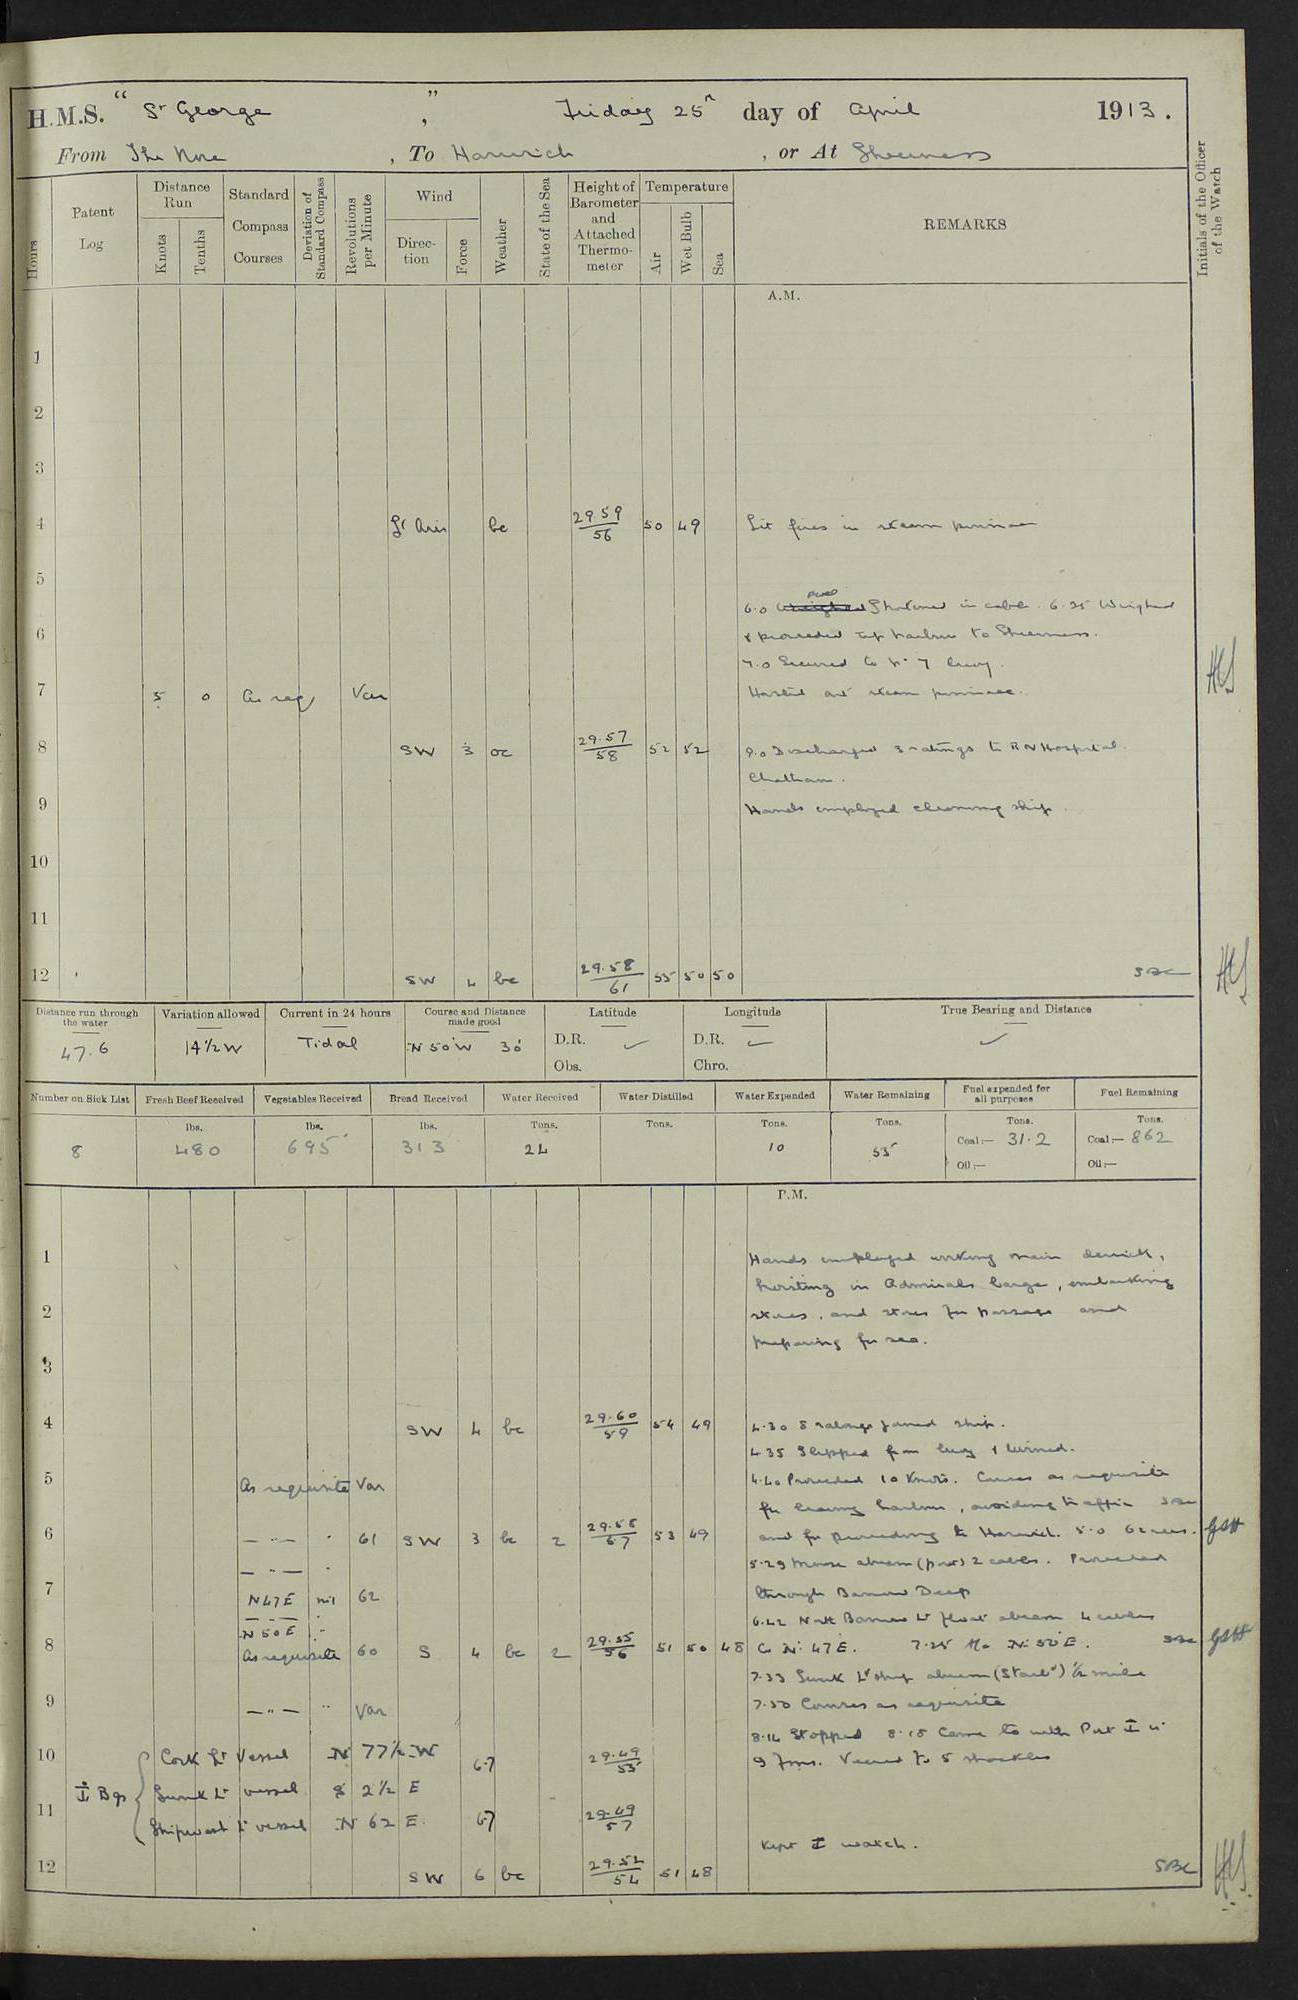 H.M.S. "St George", Friday 25th day of April 1913.
From The Nore, To Harwich, or At Sheerness
Hours
Patent Log
Distance Run
Knots
Tenths
Standard Compass Courses
Deviation of Standard Compass
Revolutions per Minute
Wind
Direction
Force
Weather
State of the Sea
Height of Barometer and Attached Thermometer
Temperature
Air
Wet Bulb
Sea
REMARKS
Initials of the Officer of the Watch
A.M.
1
2
3
4 Lt Airs bc 29.59 56 50 49 Lit fires in steam pinnace
5
6.0 Weighed Shortened in cable. 6.25 Weighed
6 & proceeded up harbour to Sheerness.
7.0 Secured to No 7 buoy.
7 5 0 As req Var Hoisted out steam pinnace.
8 SW 3 oc 29.57 58 52 52 9.0 Discharged 3 ratings to RN Hospital
Chatham.
9 Hands employed cleaning ship.
10
11
12 SW 4 bc 29.58 61 55 50 50 SBC
Distance run through the water
47.6
Variation allowed
14½ W
Current in 24 hours
Tidal
Course and Distance made good
N 50 W 30'
Latitude
D.R. ✓
Obs.
Longitude
D.R. ✓
Chro.
True Bearing and Distance
✓
Number on Sick List
8
Fresh Beef Received
lbs.
480
Vegetables Received
lbs.
695
Bread Received
lbs.
313
Water Received
Tons.
24
Water Distilled
Tons.
Water Expended
Tons.
10
Water Remaining
Tons.
55
Fuel expended for all purposes
Tons.
Coal:— 31.2
Oil:—
Fuel Remaining
Tons.
Coal:— 862
Oil:—
P.M.
1 Hands employed working main derrick,
hoisting in Admirals barge, embarking
2 stores, and stores for passage and
preparing for sea.
3
4 SW 4 bc 29.60 59 54 49 4.30 8 ratings joined ship.
4.35 Slipped from buoy & turned.
5 As requisite Var 4.40 Proceeded 10 Knots. Courses as requisite
for leaving harbour, avoiding traffic SBC
6 — " — " 61 SW 3 bc 2 29.58 57 53 49 and for proceeding to Harwich. 5.0 62 revs.
— " — " 5.29 Mouse abeam (port) 2 cables. Proceeded
7 N 47 E nil 62 through Barrow Deep
— " — " 6.42 North Barrow Lt float abeam 4 cables
N 50 E "
8 As requisite 60 S 4 bc 2 29.55 56 51 50 48 Co N 47 E. 7.25 A/c N 50 E. SBC
7.33 Sunk Lt ship abeam (Starbd) ½ mile
9 — " — " Var 7.50 Courses as requisite
8.14 Stopped 8.18 Came to with Port ⚓ in
10 Cork Lt Vessel N 77½ W 6.7 29.49 55 9 fms. Veered to 5 shackles
⚓ Bgs Sunk Lt vessel S 2½ E
11 Shipwash Lt vessel N 62 E 6.7 29.49 57
Kept ⚓ watch.
12 SW 6 bc 29.52 54 51 48 SBC